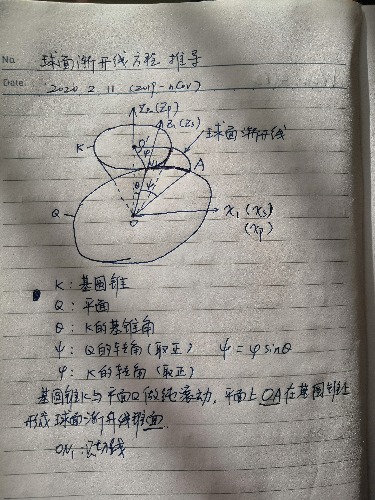 No
球面渐开线方程 推导
Date
2020 2 11 (2019-nCoV)
Z2(Zp)
Z1(Zs)
球面渐开线
K
O'
φ
N
A
θ
ψ
Q
O
X1 (Xs)
(Xp)
K: 基圆锥
Q: 平面
θ: K的基锥角
ψ: Q的转角(取正) ψ = φ sinθ
φ: K的转角(取正)
基圆锥K与平面Q做纯滚动, 平面上OA在基圆锥上
形成球面渐开线锥面.
ON: 切线